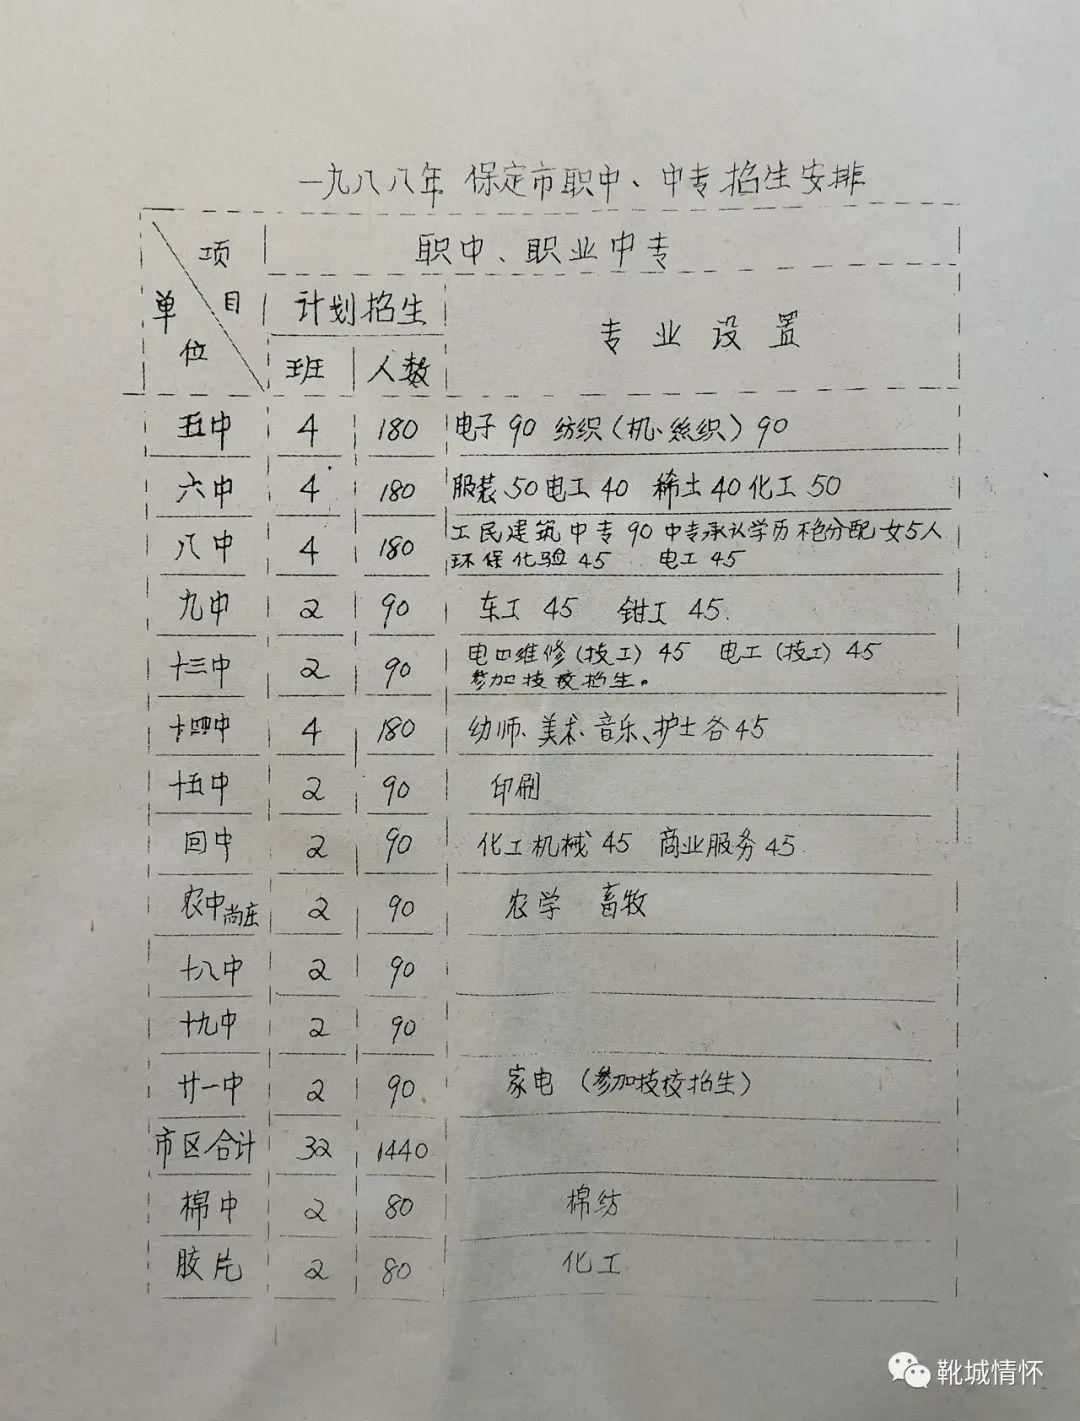 一九八八年 保定市职中、中专招生安排
项目 单位 职中、职业中专
计划招生 专业设置
班 人数
五中 4 180 电子 90 纺织(机、丝织) 90
六中 4 180 服装 50 电工 40 稀土 40 化工 50
八中 4 180 工民建筑中专 90 中专承认学历 不包分配 女5人
环保化验 45 电工 45
九中 2 90 车工 45 钳工 45.
十三中 2 90 电口维修(技工) 45 电工(技工) 45
参加技校招生。
十四中 4 180 幼师、美术、音乐、护士各45
十五中 2 90 印刷
回中 2 90 化工机械 45 商业服务 45
农中尚庄 2 90 农学 畜牧
十八中 2 90
十九中 2 90
廿一中 2 90 家电 (参加技校招生)
市区合计 32 1440
棉中 2 80 棉纺
胶片 2 80 化工
靴城情怀